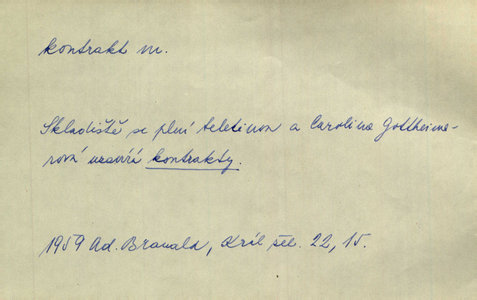 kontrakt m.
Skladiště se plní teletinou a Carolina Gottheime-
rová uzavírá kontrakty.
1959 Ad. Branald, Král žel. 22, 15.